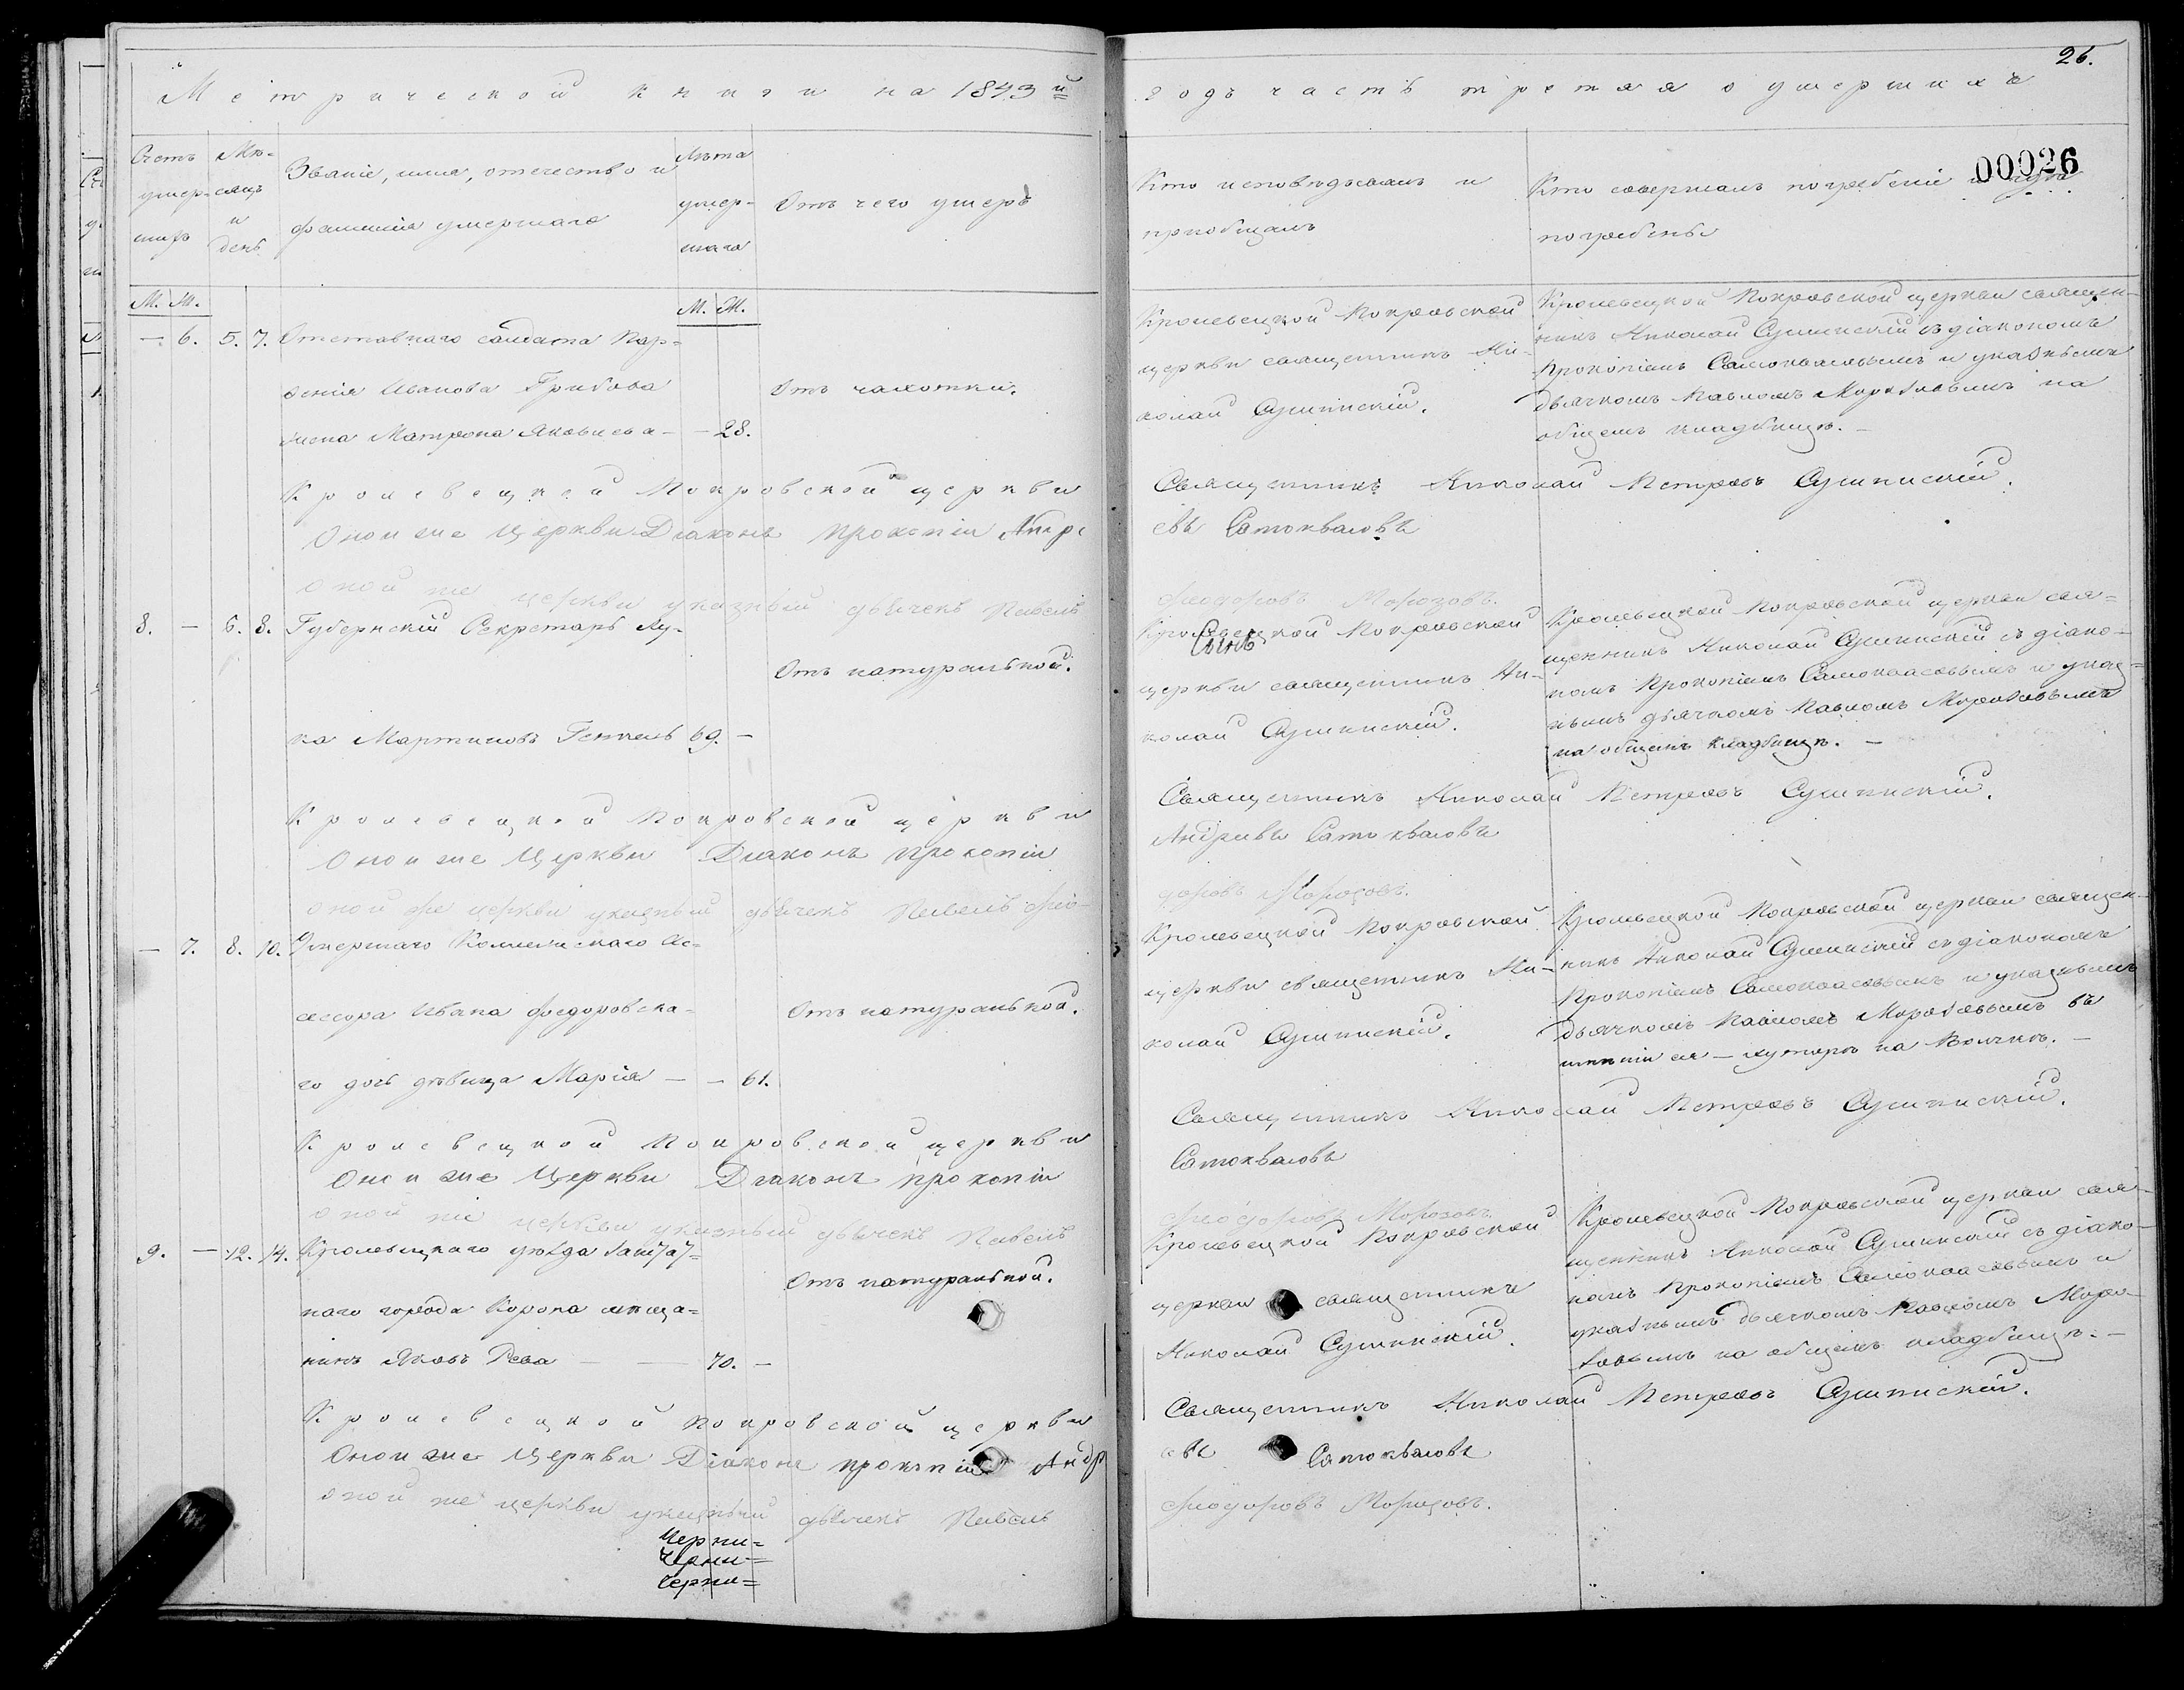 26.
Метрической книги на 1843й
годъ часть третяя о умершихъ
00026
Счетъ умер-шихъ
Мѣ-сяцъ и день
Званіе, имя, отечество и
фамилія умершаго
Лѣта умер-шаго
Отъ чего умеръ
Кто исповѣдывалъ и
пріобщалъ
Кто совершалъ погребеніе и гдѣ
погребены
М. Ж.
М. Ж.
— 6. 5. 7. Отставнаго солдата Пар-
фенія Иванова Грибова
жена Матрона Яковлева — — 28.
Отъ чахотки.
Кролевецкой Покровской
церкви священникъ Ни-
колай Сушинскій.
Кролевецкой Покровской церкви священ-
никъ Николай Сушинскій съ діакономъ
Прокопіемъ Самокваловымъ и указнымъ
дьячкомъ Павломъ Морозовымъ на
общемъ кладбищѣ. —
Кролевецкой Покровской церкви Священникъ Николай Петровъ Сушинскій.
Оной же Церкви Діаконъ Прокопій Андре
евъ Самокваловъ
оной же церкви указный дьячекъ Павелъ
Феодоровъ Морозовъ.
8. — 6. 8. Губернскій Секретарь Лу-
ка Мартиновъ Генчель 69. —
Отъ натуральной.
Кролевецкой Покровской
Сынъ
церкви священникъ Ни-
колай Сушинскій.
Кролевецкой Покровской церкви свя-
щенникъ Николай Сушинскій съ діако-
номъ Прокопіемъ Самокваловымъ и указ-
нымъ дьячкомъ Павломъ Морозовымъ
на общемъ кладбищѣ. —
Кролевецкой Покровской церкви Священникъ Николай Петровъ Сушинскій.
Оной же Церкви Діаконъ Прокопій
Андреевъ Самокваловъ
оной же церкви указный дьячекъ Павелъ Фео-
доровъ Морозовъ.
— 7. 8. 10. Умершаго Коллежскаго Ас-
сесора Ивана Федоровска-
го дочь дѣвица Марія — — 61.
Отъ натуральной.
Кролевецкой Покровской
церкви священникъ Ни-
колай Сушинскій.
Кролевецкой Покровской церкви священ-
никъ Николай Сушинскій съ діакономъ
Прокопіемъ Самокваловымъ и указнымъ
дьячкомъ Павломъ Морозовымъ въ
имѣніи ея — хуторѣ на
Кролевецкой Покровской церкви Священникъ Николай Петровъ Сушинскій.
Оной же Церкви Діаконъ Прокопій
Самокваловъ
оной же церкви указный дьячекъ Павелъ
Феодоровъ Морозовъ.
9. — 12. 14. Кролевецкаго уѣзда заштат-
наго города Коропа мѣща-
нинъ Яковъ Рева — — 70. —
Отъ натуральной.
Кролевецкой Покровской
церкви священникъ
Николай Сушинскій.
Кролевецкой Покровской церкви свя-
щенникъ Николай Сушинскій съ діако-
номъ Прокопіемъ Самокваловымъ и
указнымъ дьячкомъ Павломъ Моро-
зовымъ на общемъ кладбищѣ. —
Кролевецкой Покровской церкви Священникъ Николай Петровъ Сушинскій.
Оной же Церкви Діаконъ Прокопій Андр
евъ Самокваловъ
оной же церкви указный дьячекъ Павелъ
Феодоровъ Морозовъ.
Черни=
Черни=
Черни=